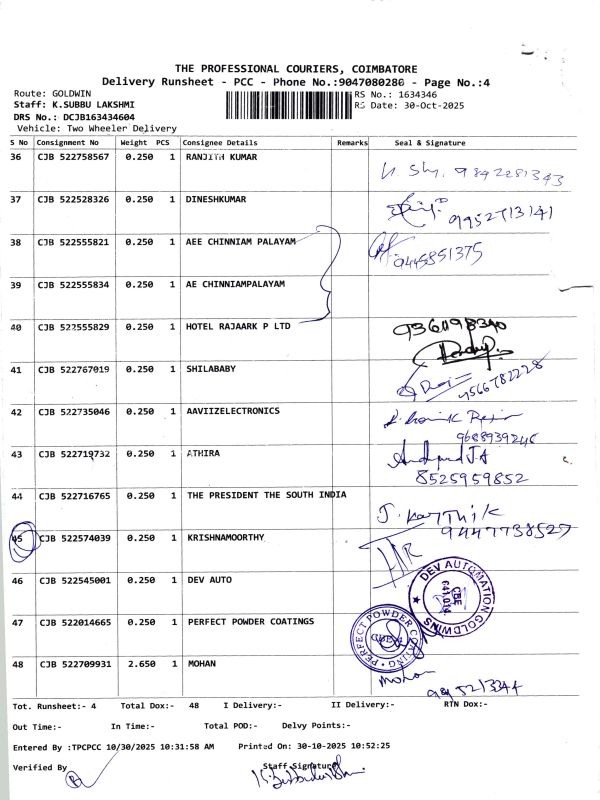 THE PROFESSIONAL COURIERS, COIMBATORE
Delivery Runsheet - PCC - Phone No.:9047080280 - Page No.:4
Route: GOLDWIN RS No.: 1634346
Staff: K.SUBBU LAKSHMI RS Date: 30-Oct-2025
DRS No.: DCJB163434604
Vehicle: Two Wheeler Delivery
S No Consignment No Weight PCS Consignee Details Remarks Seal & Signature
36 CJB 522758567 0.250 1 RANJITH KUMAR
9842281343
37 CJB 522528326 0.250 1 DINESHKUMAR
9952713141
38 CJB 522555821 0.250 1 AEE CHINNIAM PALAYAM
9445851375
39 CJB 522555834 0.250 1 AE CHINNIAMPALAYAM
40 CJB 522555829 0.250 1 HOTEL RAJAARK P LTD
41 CJB 522767019 0.250 1 SHILABABY
9566782228
42 CJB 522735046 0.250 1 AAVIIZELECTRONICS
43 CJB 522719732 0.250 1 ATHIRA
8525959852
44 CJB 522716765 0.250 1 THE PRESIDENT THE SOUTH INDIA
J. KARTHIK
9447738527
45 CJB 522574039 0.250 1 KRISHNAMOORTHY
46 CJB 522545001 0.250 1 DEV AUTO
DEV AUTOMATION GOLDWINS
CBE
641 014.
47 CJB 522014665 0.250 1 PERFECT POWDER COATINGS
PERFECT POWDER COATING
48 CJB 522709931 2.650 1 MOHAN
mohan
Tot. Runsheet:- 4 Total Dox:- 48 I Delivery:- II Delivery:- RTN Dox:-
Out Time:- In Time:- Total POD:- Delvy Points:-
Entered By :TPCPCC 10/30/2025 10:31:58 AM Printed On: 30-10-2025 10:52:25
Verified By Staff Signature